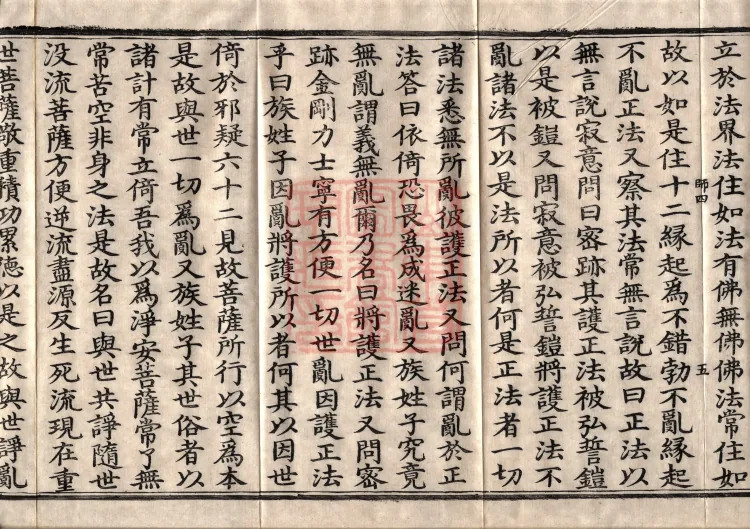 立於法界法住如法有佛無佛佛法常住如
故以如是住十二緣起為不錯勃不亂緣起
師四 五
不亂正法又察其法常無言說故曰正法以
無言說寂意問曰密跡其護正法被弘誓鎧
以是被鎧又問寂意被弘誓鎧將護正法不
亂諸法不以是法所以者何是正法者一切
諸法悉無所亂彼護正法又問何謂亂於正
法答曰依倚恐畏為成迷亂又族姓子究竟
無亂謂義無亂爾乃名曰將護正法又問密
跡金剛力士寧有方便一切世亂因護正法
乎曰族姓子因亂將護所以者何其以因世
倚於邪疑六十二見故菩薩所行以空為本
是故與世一切為亂又族姓子其世俗者以
諸計有常立倚吾我以為淨安菩薩常了無
常苦空非身之法是故名曰與世共諍隨世
沒流菩薩方便逆流盡源反生死流現在重
世菩薩敬重積功累德以是之故與世諍亂